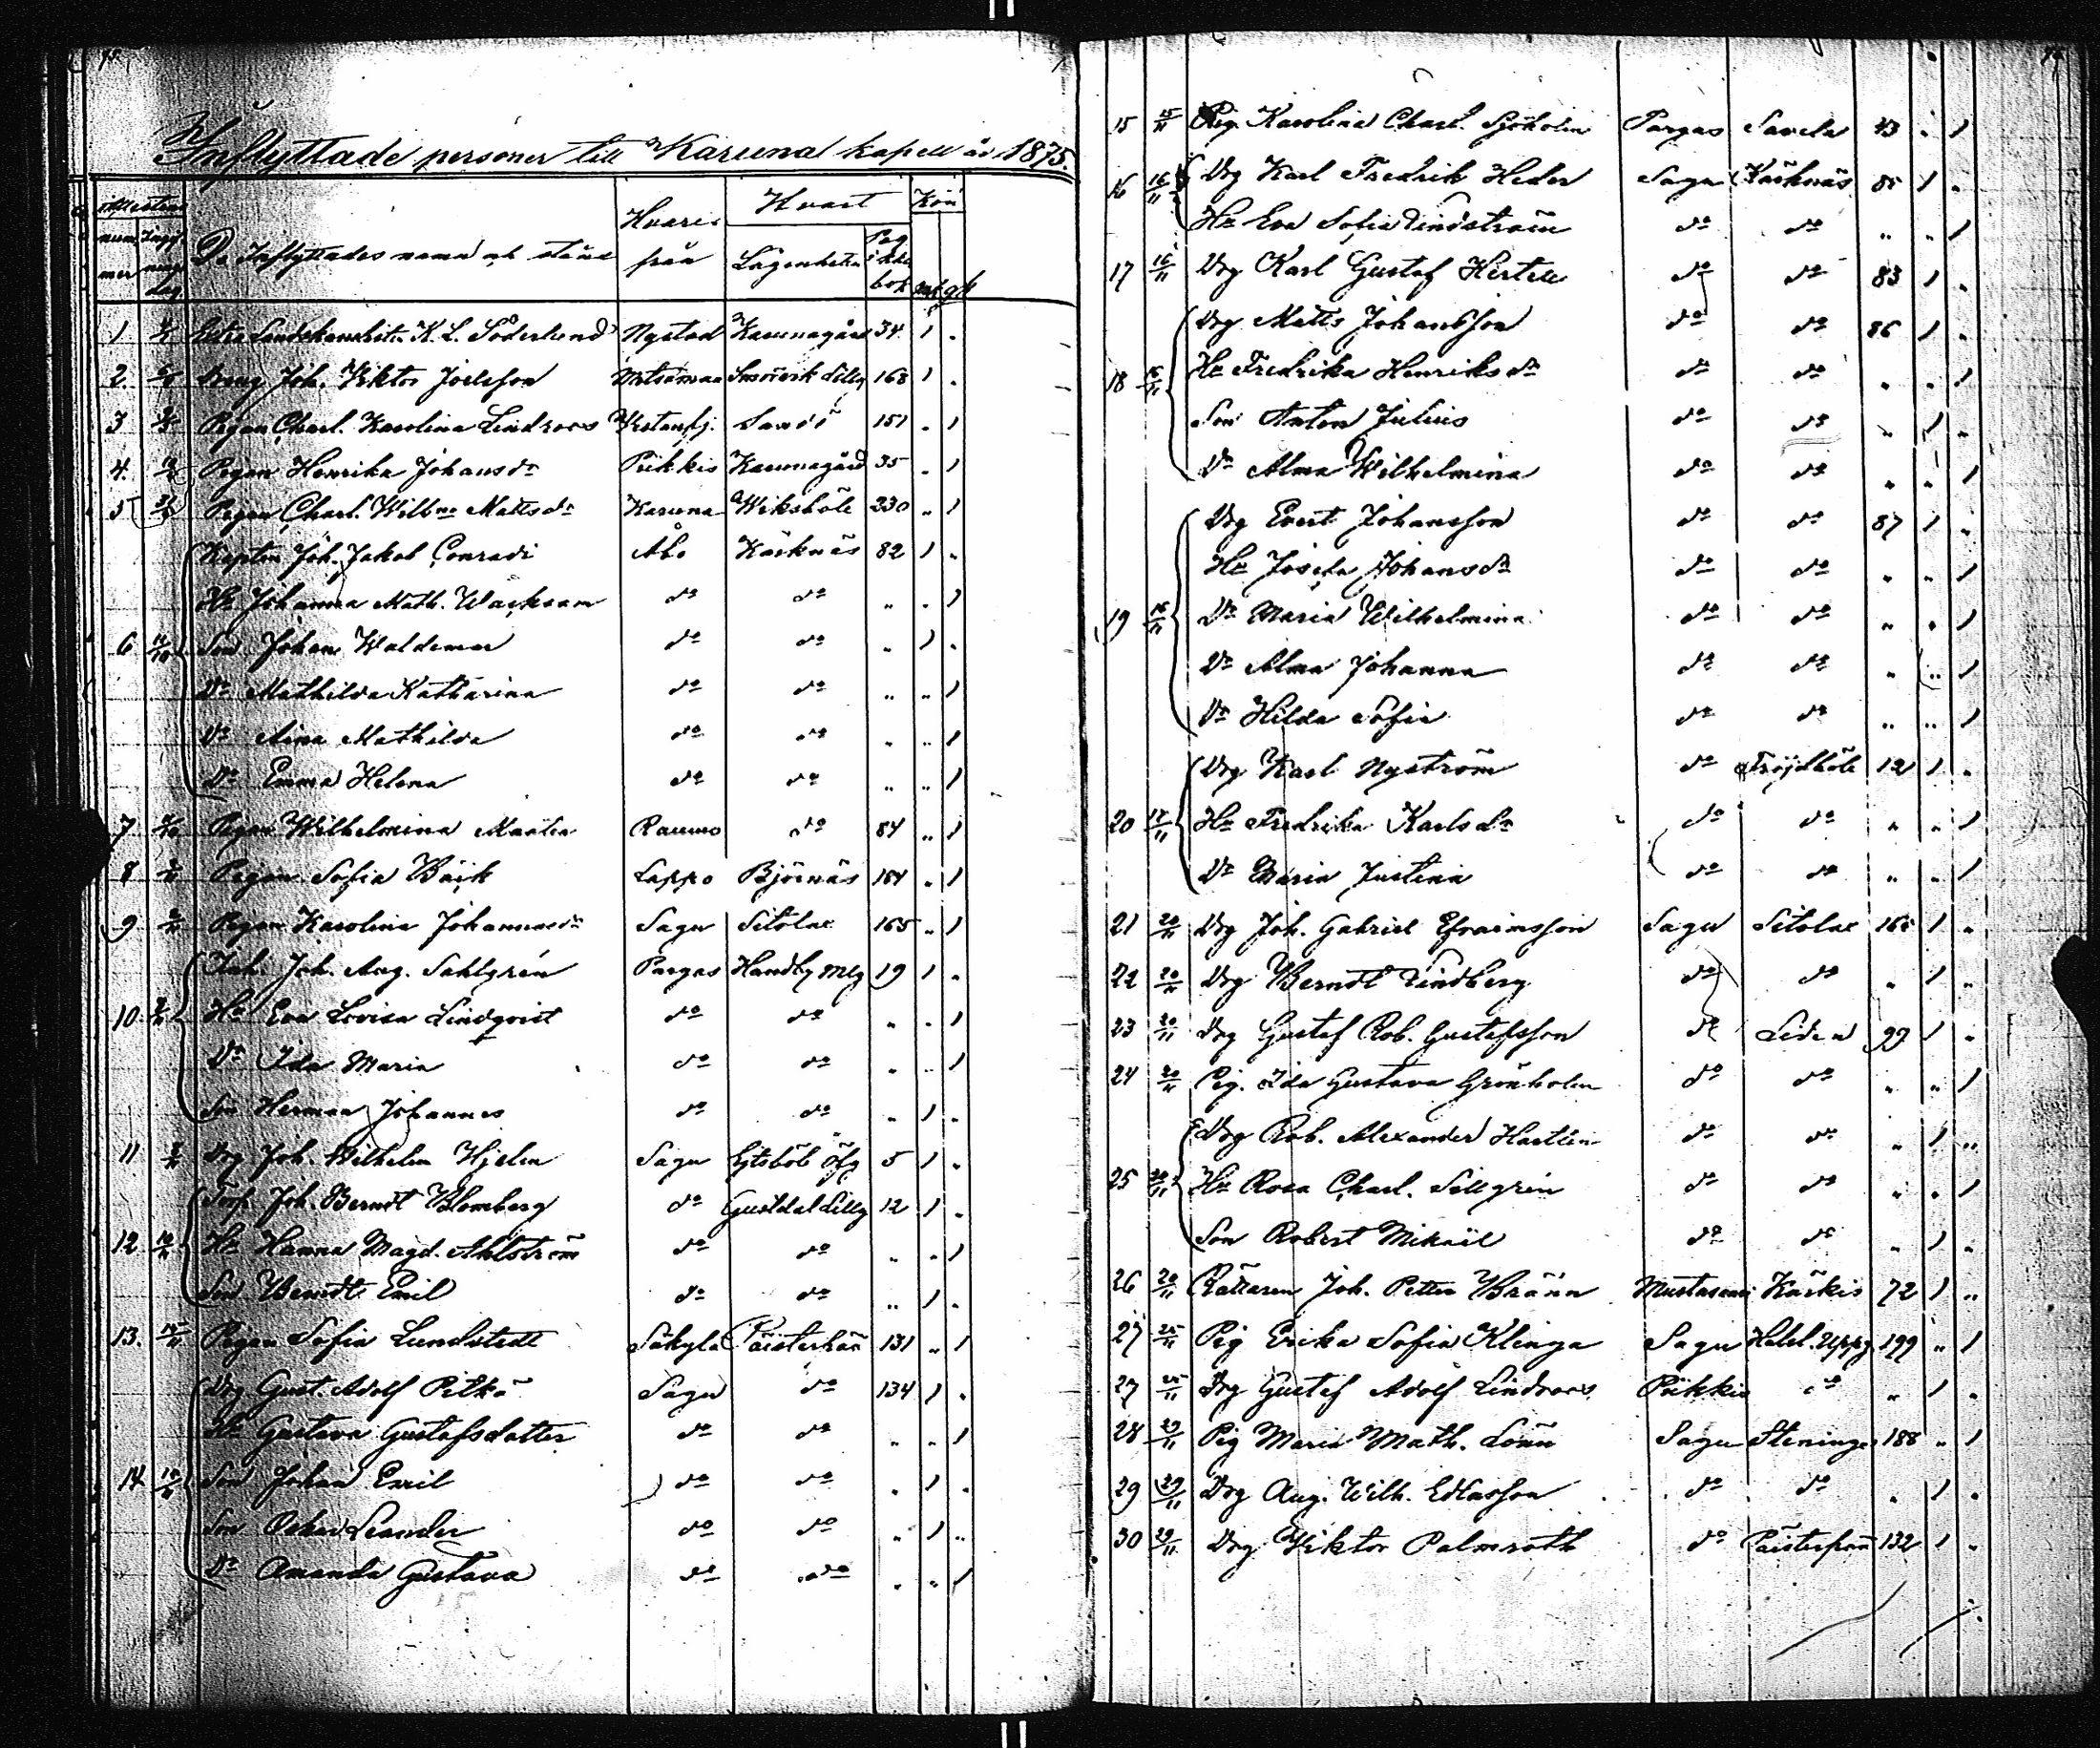 Inflyttade personer till Karuna kapell år 1875.
De Inflyttades namn och stånd Hvarifrån Hvart Kön
Lägenheten Pag i k.bok mk qk
1 Extra Landskanslisten K. L. Söderlund Nystad Karunagård 34 1 "
2. Dräng Joh. Viktor Joelsson Metsämaa Smörvik Lillg 168 1 "
3 Pigan Charl. Karolina Lindroos Vestanfj. Sandö 151 " 1
4. Pigan Henrika Johansdr Piikkis Karunagård 35 " 1
5 Pigan Charl. Wilhna Mattsdr Karuna Wiksböle 230 " 1
Kapten Joh. Jakob Conradi Åbo Käsknäs 82 1 "
Hu Johanna Math. Wacksam do do " " 1
6 Son Johan Waldemar do do " 1 "
Dr Mathilda Katharina do do " " 1
Dr Aina Mathilda do do " " 1
Dr Emma Helena do do " " 1
7 Pigan Wilhelmina Raumo do 84 " 1
8 Pigan Sofia Lappo Björnäs 164 " 1
9 Pigan Karolina Johannesdr Sagu Sitolax 165 " 1
Inh. Joh. Aug. Sahlgrén Pargas Handby Mlg 19 1 "
10. Hu Eva Lovisa Lindqvist do do " " 1
Dr Ida Maria do do " " 1
Son Herman Johannes do do " 1 "
11 Drg Joh. Wilhelm Hjelm Sagu Öfg 5 1 "
Torp. Joh. Berndt Blomberg do Gustdal Lillg 12 1 "
12 Hu Hanna Magd. Ahlström do do " " 1
Son Berndt Emil do do " 1 "
13. Pigan Sofia Lundstedt Säkylä Päisterpää 131 " 1
Drg Gust. Adolf Pitkä Sagu do 134 1 "
Hu Gustava Gustafsdotter do do " " 1
14 Son Johan Emil do do " 1 "
Son Oskar Leander do do " 1 "
Dr Amanda Gustava do do " " 1
15 15/11 Pig. Karolina Charl. Sjöholm Pargas Savela 43 " 1
16 16/11 Drg Karl Fredrik Heder Sagu Käsknäs 85 1 "
Hu Eva Sofia Lindström do do " " 1
17 16/11 Drg Karl Gustaf Hertell do do 83 1 "
Drg Matts Johansson do do 86 1 "
18 16/11 Hu Fredrika Henriksdr do do " " 1
Son Anton Julius do do " 1 "
Dr Alma Wilhelmina do do " " 1
Drg Evert Johansson do do 87 1 "
Hu Josefa Johansdr do do " " 1
19 16/11 Dr Maria Wilhelmina do do " " 1
Dr Alma Johanna do do " " 1
Dr Hilda Sofia do do " " 1
Drg Karl Nyström do Fröjdböle 12 1 "
20 17/11 Hu Fredrika Karlsdr do do " " 1
Dr Maria Justina do do " " 1
21 20/11 Drg Joh. Gabriel Efraimsson Sagu Sitolax 165 1 "
22 20/11 Drg Berndt Lindberg do do " 1 "
23 20/11 Drg Gustaf Rob. Gustafsson do Liden 99 1 "
24 20/11 Pig. Ida Gustava Grönholm do do " " 1
Drg Rob. Alexander Hartlin do do " 1 "
25 20/11 Hu Rosa Charl. Sellgrén do do " " 1
Son Robert Mikaël do do " 1 "
26 20/11 Rättaren Joh. Petter Bränn Mustasaari Kärkis 72 1 "
27 25/11 Pig Erika Sofia Klinga Sagu Uppg 199 " 1
27 25/11 Drg Gustaf Adolf Lindroos Piikkis do " 1 "
28 29/11 Pig Maria Math. Lönn Sagu Steninge 188 " 1
29 29/11 Drg Aug. Wilh. Edlasson do do " 1 "
30 29/11 Drg Viktor Palmroth do Päisterpää 132 1 "